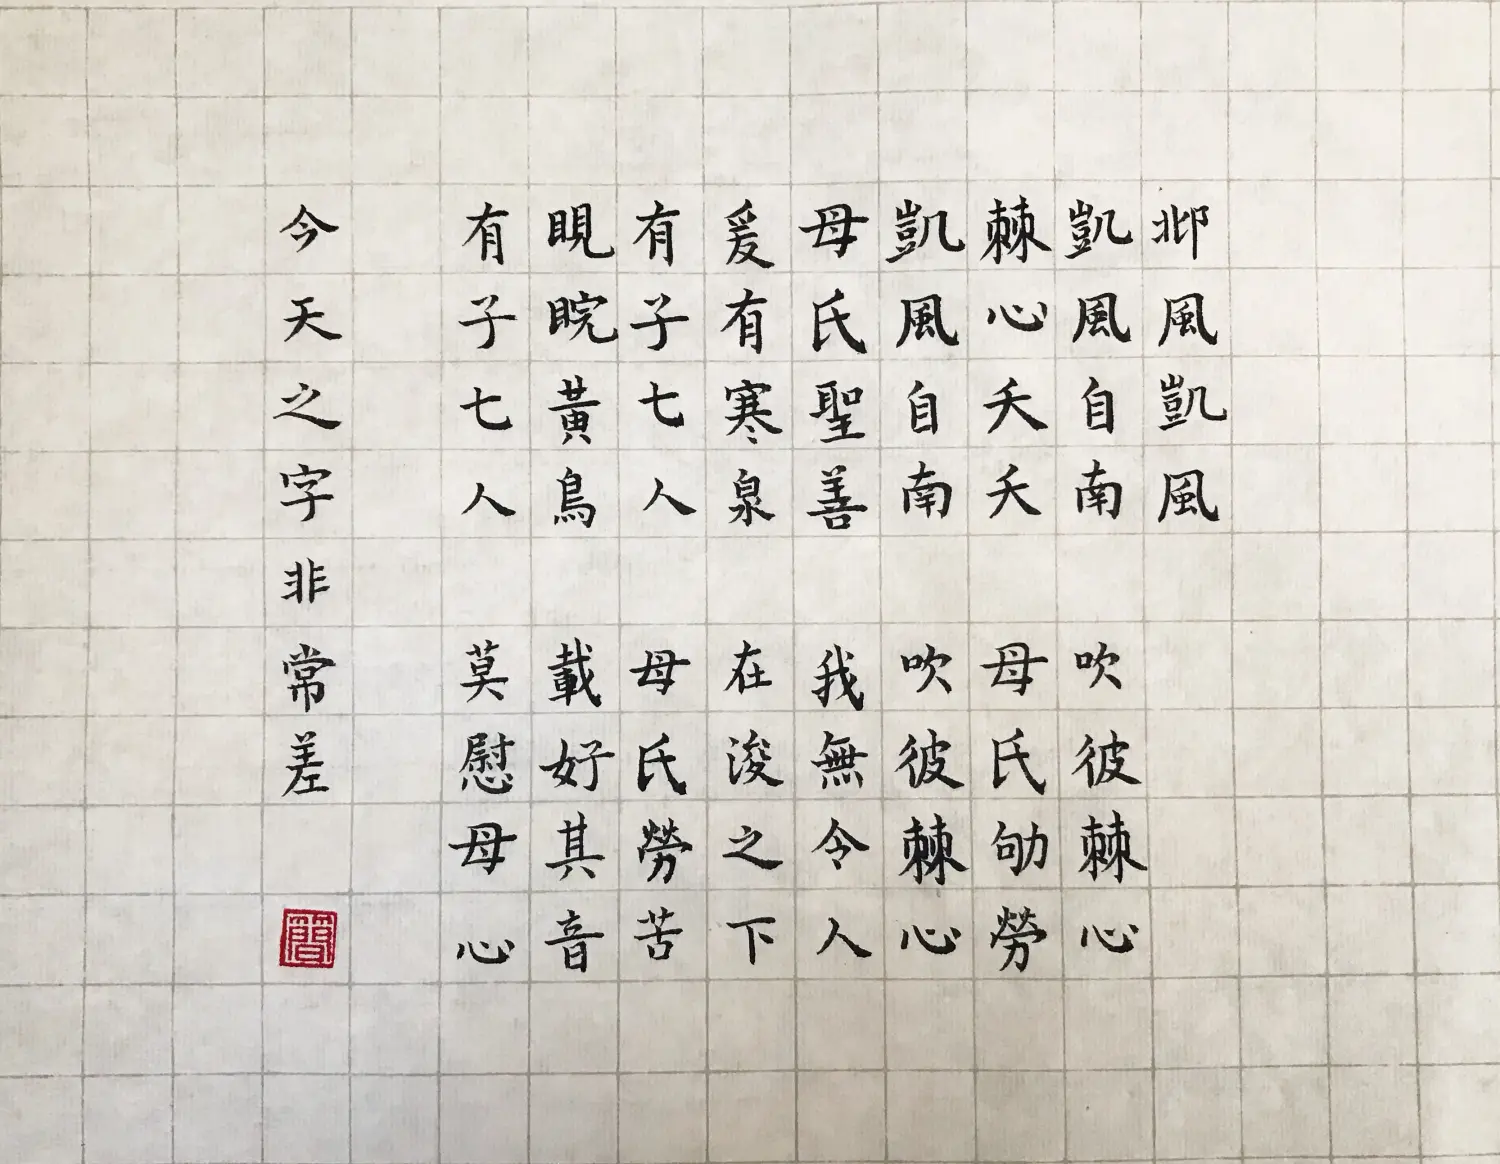 邶風凱風
凱風自南 吹彼棘心
棘心夭夭 母氏劬勞
凱風自南 吹彼棘心
母氏聖善 我無令人
爰有寒泉 在浚之下
有子七人 母氏勞苦
睍睆黃鳥 載好其音
有子七人 莫慰母心
今天之字非常差